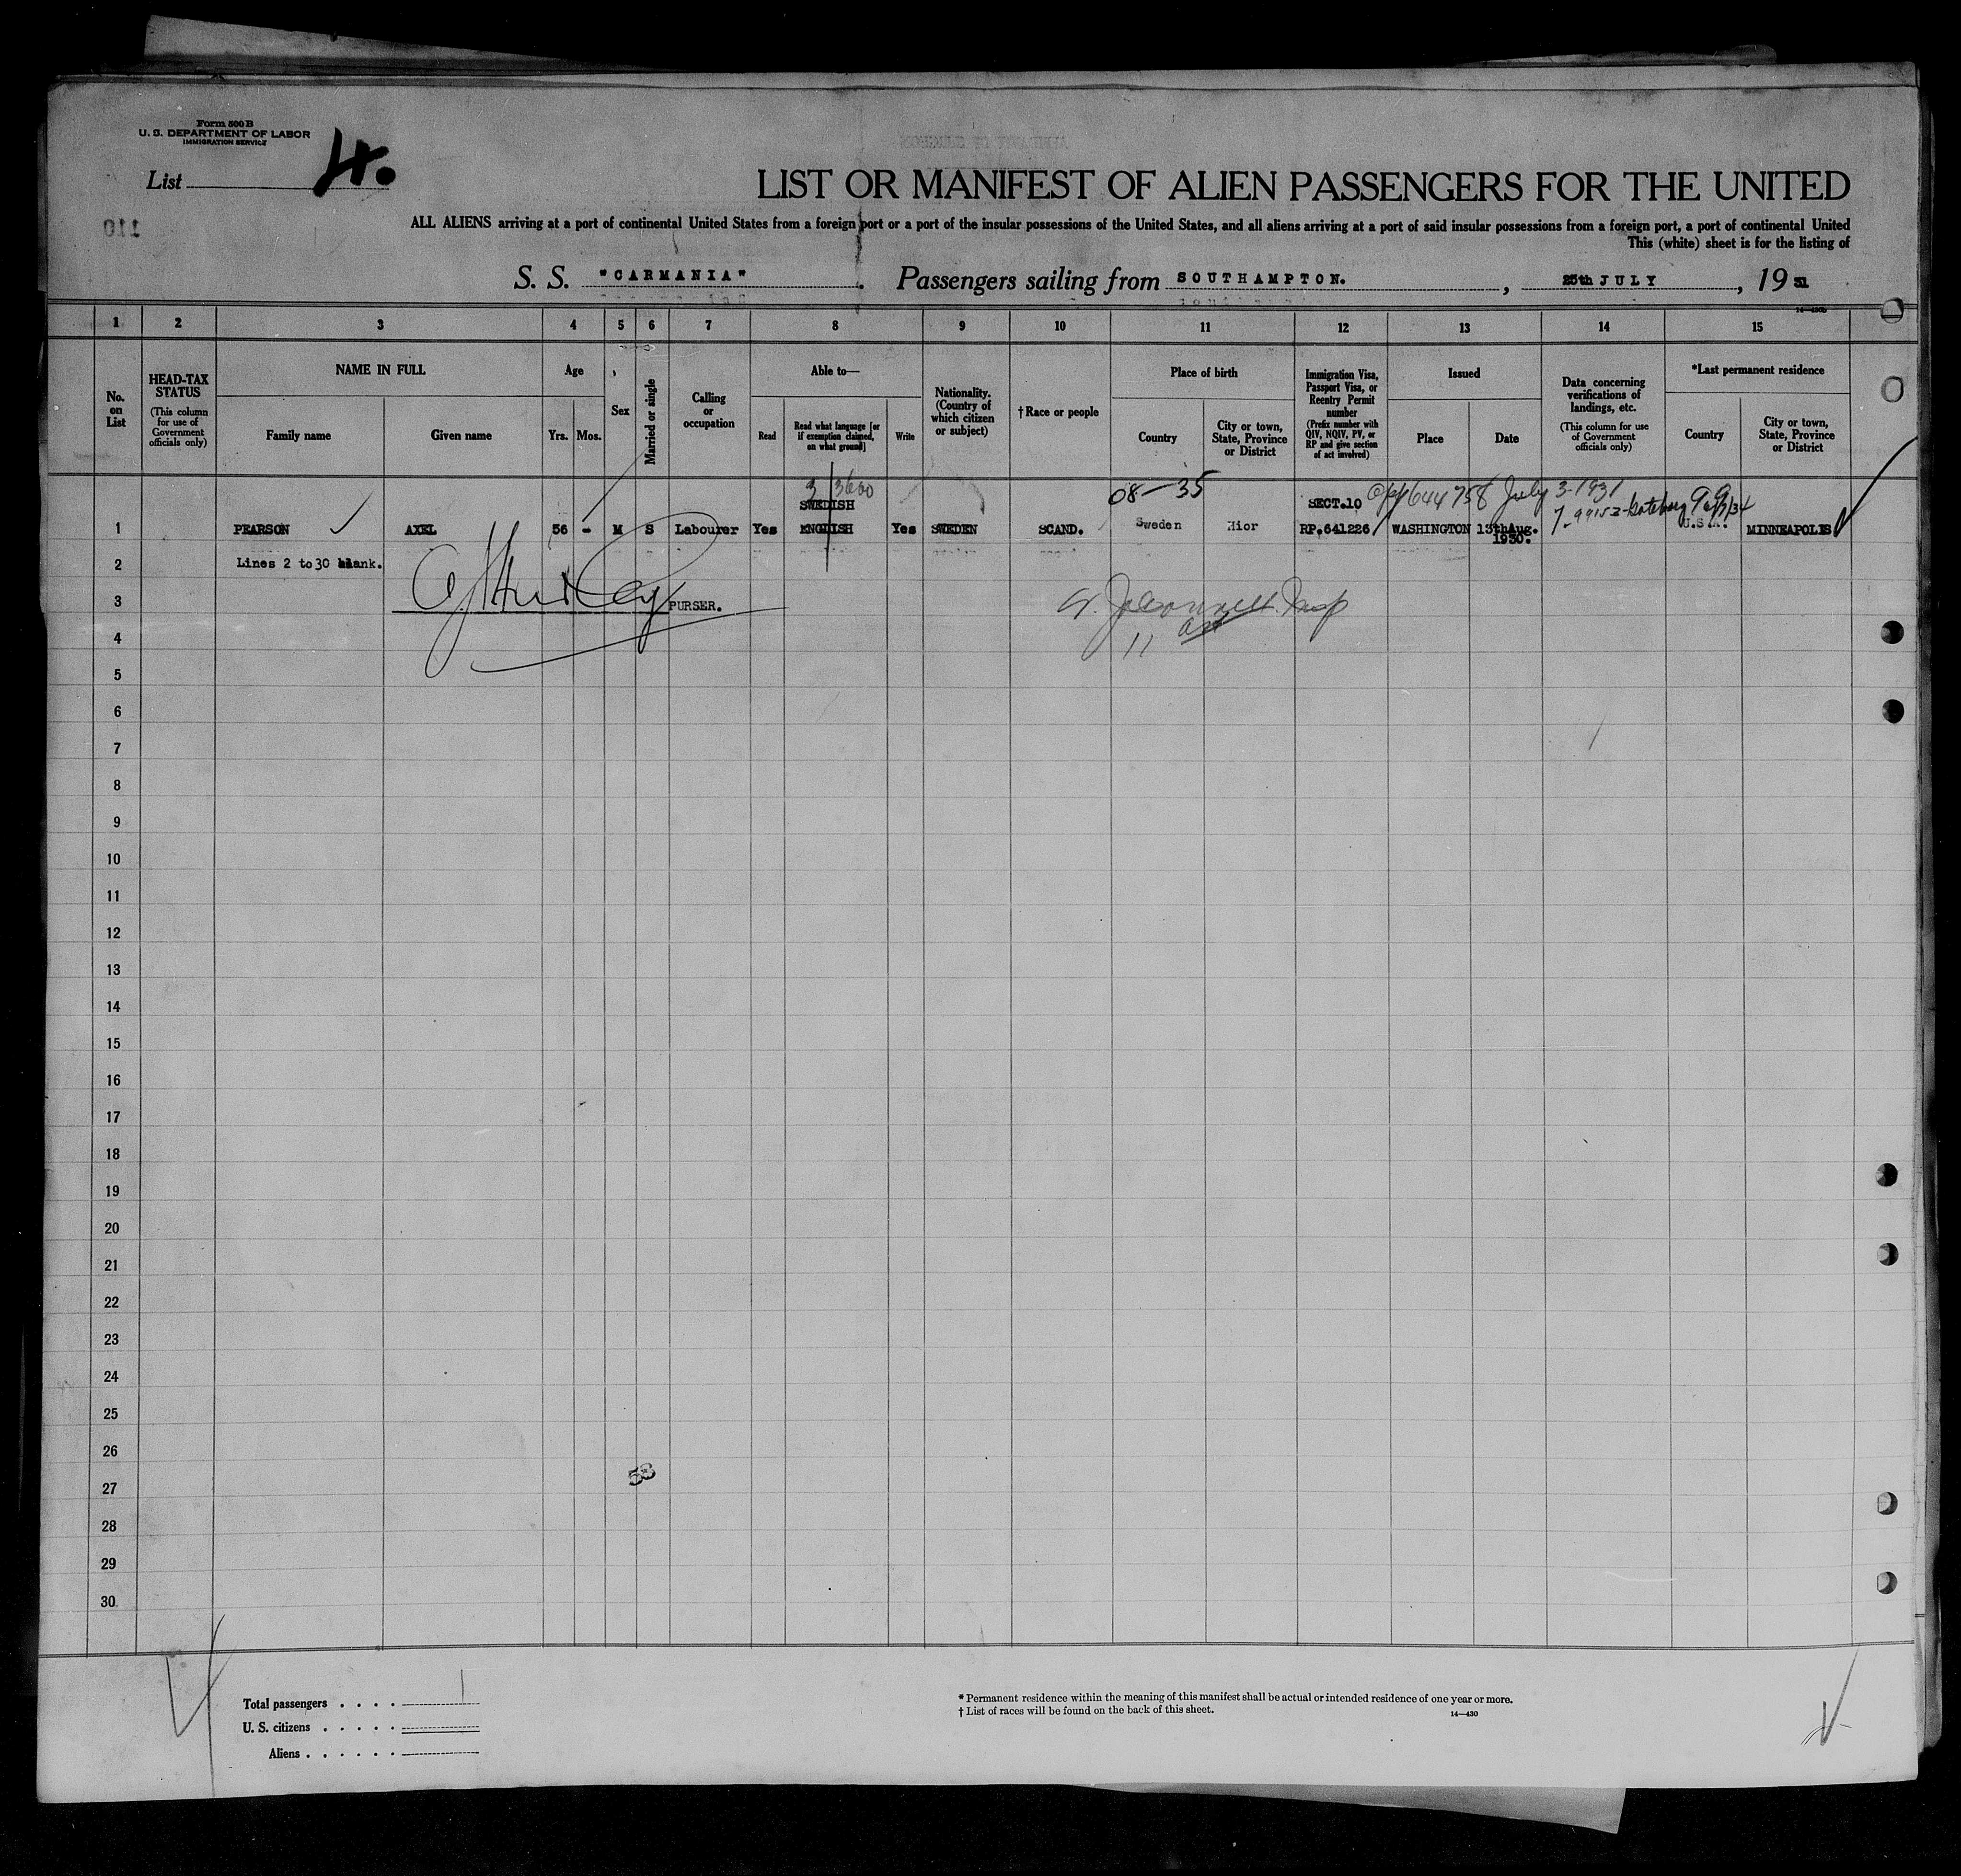 Form 500 B
U. S. DEPARTMENT OF LABOR
IMMIGRATION SERVICE
List 4.
110
LIST OR MANIFEST OF ALIEN PASSENGERS FOR THE UNITED
ALL ALIENS arriving at a port of continental United States from a foreign port or a port of the insular possessions of the United States, and all aliens arriving at a port of said insular possessions from a foreign port, a port of continental United
This (white) sheet is for the listing of
S. S. "CARMANIA". Passengers sailing from SOUTHAMPTON. , 25th JULY , 19 31
1 2 3 4 5 6 7 8 9 10 11 12 13 14 15
No. on List
HEAD-TAX STATUS
(This column for use of Government officials only)
NAME IN FULL
Family name
Given name
Age
Yrs. Mos.
Sex
Married or single
Calling or occupation
Able to—
Read
Read what language [or if exemption claimed, on what ground]
Write
Nationality. (Country of which citizen or subject)
†Race or people
Place of birth
Country
City or town, State, Province or District
Immigration Visa, Passport Visa, or Reentry Permit number
(Prefix number with QIV, NQIV, PV, or RP and give section of act involved)
Issued
Place
Date
Data concerning verifications of landings, etc.
(This column for use of Government officials only)
*Last permanent residence
Country
City or town, State, Province or District
3 3600 08—35 644758 July 3-1931
SWEDISH SECT.10
1 PEARSON AXEL 56 - M S Labourer Yes ENGLISH Yes SWEDEN SCAND. Sweden Hior RP.641226 WASHINGTON 13thAug. 1930. U.S.A. MINNEAPOLIS
2 Lines 2 to 30 blank.
3 PURSER.
4 11
5
6
7
8
9
10
11
12
13
14
15
16
17
18
19
20
21
22
23
24
25
26
53
27
28
29
30
Total passengers . . . . 1
U. S. citizens . . . . .
Aliens . . . . . .
* Permanent residence within the meaning of this manifest shall be actual or intended residence of one year or more.
† List of races will be found on the back of this sheet.
14—430